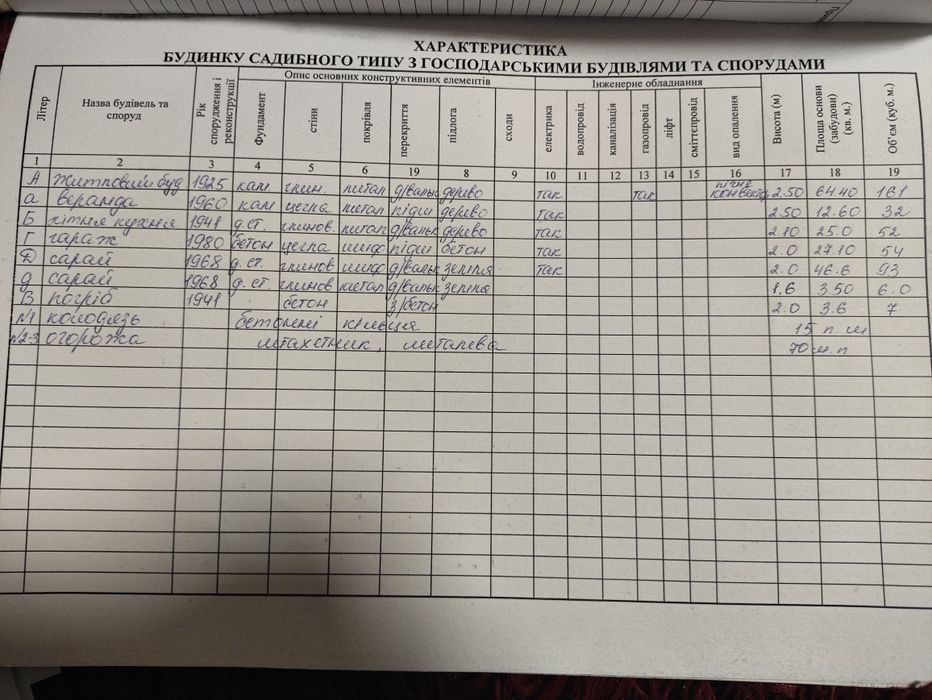 ХАРАКТЕРИСТИКА
БУДИНКУ САДИБНОГО ТИПУ З ГОСПОДАРСЬКИМИ БУДІВЛЯМИ ТА СПОРУДАМИ
Літер Назва будівель та споруд Рік спорудження і реконструкції Опис основних конструктивних елементів Інженерне обладнання Висота (м) Площа основи (забудови) (кв. м.) Об'єм (куб. м.)
Фундамент стіни покрівля перекриття підлога сходи електрика водопровід каналізація газопровід ліфт сміттєпровід вид опалення
1 2 3 4 5 6 19 8 9 10 11 12 13 14 15 16 17 18 19
А житловий буд 1925 кам. глин. метал д/вальк дерево так так пічне конвектр 2.50 64.40 161
а веранда 1960 кам цегла метал підш дерево так 2.50 12.60 32
Б літня кухня 1941 д.ст. глинов. метал д/вальк дерево так 2.10 25.0 52
Г гараж 1980 бетон цегла шиф підш бетон так 2.0 27.10 54
Д сарай 1968 д.ст. глинов шиф д/вальк земля так 2.0 46.6 93
д сарай 1968 д.ст. глинов метал д/вальк земля 1.6 3.50 6.0
В погріб 1941 бетон з/бетон 2.0 3.6 7
№1 колодязь бетонні кільця 15 п.м
№2-3 огорожа штахетник, металева 70 м.п